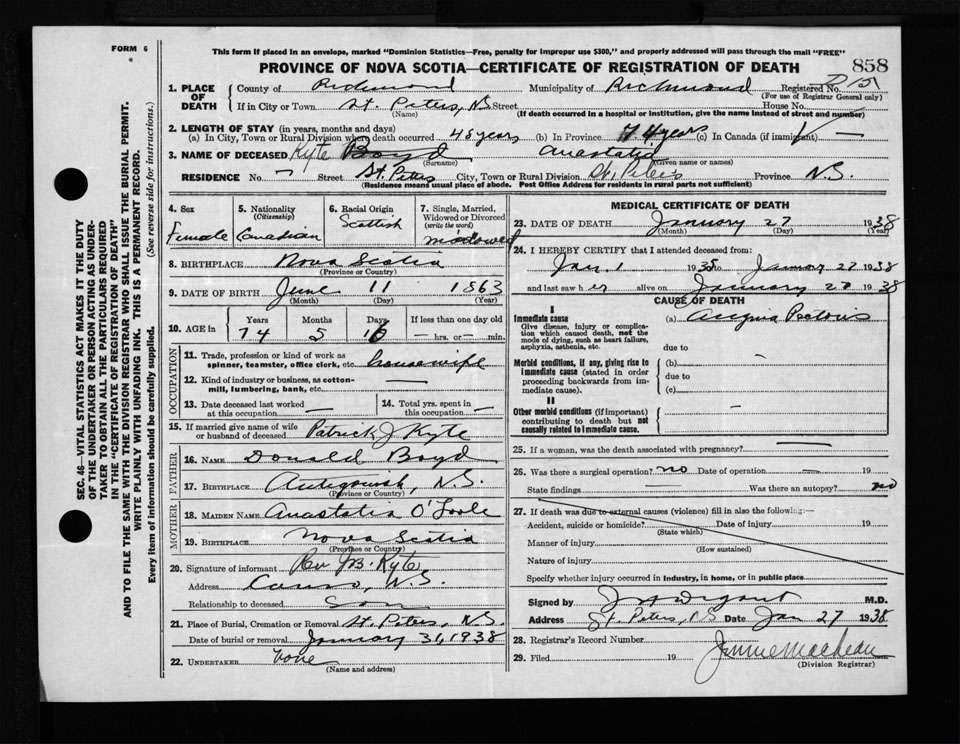 FORM 6
This form if placed in an envelope, marked "Dominion Statistics—Free, penalty for improper use $300," and properly addressed will pass through the mail "FREE"
PROVINCE OF NOVA SCOTIA—CERTIFICATE OF REGISTRATION OF DEATH
858
1. PLACE OF DEATH
County of Richmond Municipality of Richmond Registered No.
(For use of Registrar General only)
If in City or Town St. Peters, N.S. Street House No.
(Name) (If death occurred in a hospital or institution, give the name instead of street and number)
2. LENGTH OF STAY (in years, months and days)
(a) In City, Town or Rural Division where death occurred 48 years (b) In Province 74 years (c) In Canada (if immigrant) —
3. NAME OF DECEASED Kyte Boyd Anastatia
(Surname) (Given name or names)
RESIDENCE No. — Street St. Peters City, Town or Rural Division St. Peters Province N.S.
(Residence means usual place of abode. Post Office Address for residents in rural parts not sufficient)
4. Sex Female
5. Nationality (Citizenship) Canadian
6. Racial Origin Scottish
7. Single, Married, Widowed or Divorced (write the word) Widowed
8. BIRTHPLACE Nova Scotia
(Province or Country)
9. DATE OF BIRTH June 11 1863
(Month) (Day) (Year)
10. AGE in Years Months Days If less than one day old
74 5 16 hrs. or min.
OCCUPATION
11. Trade, profession or kind of work as spinner, teamster, office clerk, etc. housewife
12. Kind of industry or business, as cotton-mill, lumbering, bank, etc. —
13. Date deceased last worked at this occupation —
14. Total yrs. spent in this occupation —
15. If married give name of wife or husband of deceased Patrick J Kyte
FATHER
16. NAME Donald Boyd
17. BIRTHPLACE Antigonish, N.S.
(Province or Country)
MOTHER
18. MAIDEN NAME Anastatia O'Toole
19. BIRTHPLACE Nova Scotia
(Province or Country)
20. Signature of informant Rev J.B. Kyte
Address Canso, N.S.
Relationship to deceased Son
21. Place of Burial, Cremation or Removal St. Peters, N.S.
Date of burial or removal January 31, 1938
22. UNDERTAKER none
(Name and address)
MEDICAL CERTIFICATE OF DEATH
23. DATE OF DEATH January 27 1938
(Month) (Day) (Year)
24. I HEREBY CERTIFY that I attended deceased from:
Jan. 1 1938 to January 27 1938
and last saw her alive on January 1938
CAUSE OF DEATH
I
Immediate cause (a) Angina Pectoris
Give disease, injury or complication which caused death, not the mode of dying, such as heart failure, asphyxia, asthenia, etc.
due to
Morbid conditions, if any, giving rise to immediate cause (stated in order proceeding backwards from immediate cause).
(b) —
due to
(c)
II
Other morbid conditions (if important) contributing to death but not causally related to immediate cause.
25. If a woman, was the death associated with pregnancy? —
26. Was there a surgical operation? no Date of operation — 19
State findings — Was there an autopsy? no
27. If death was due to external causes (violence) fill in also the following:—
Accident, suicide or homicide? Date of injury 19
(State which)
Manner of injury
(How sustained)
Nature of injury
Specify whether injury occurred in industry, in home, or in public place
Signed by M.D.
Address St. Peters, N.S. Date Jan 27 1938
28. Registrar's Record Number
29. Filed 19
(Division Registrar)
SEC. 46—VITAL STATISTICS ACT MAKES IT THE DUTY
OF THE UNDERTAKER OR PERSON ACTING AS UNDER-
TAKER TO OBTAIN ALL THE PARTICULARS REQUIRED
IN THE "CERTIFICATE OF REGISTRATION OF DEATH"
AND TO FILE THE SAME WITH THE DIVISION REGISTRAR WHO SHALL ISSUE THE BURIAL PERMIT.
WRITE PLAINLY WITH UNFADING INK. THIS IS A PERMANENT RECORD.
Every item of information should be carefully supplied. (See reverse side for instructions.)